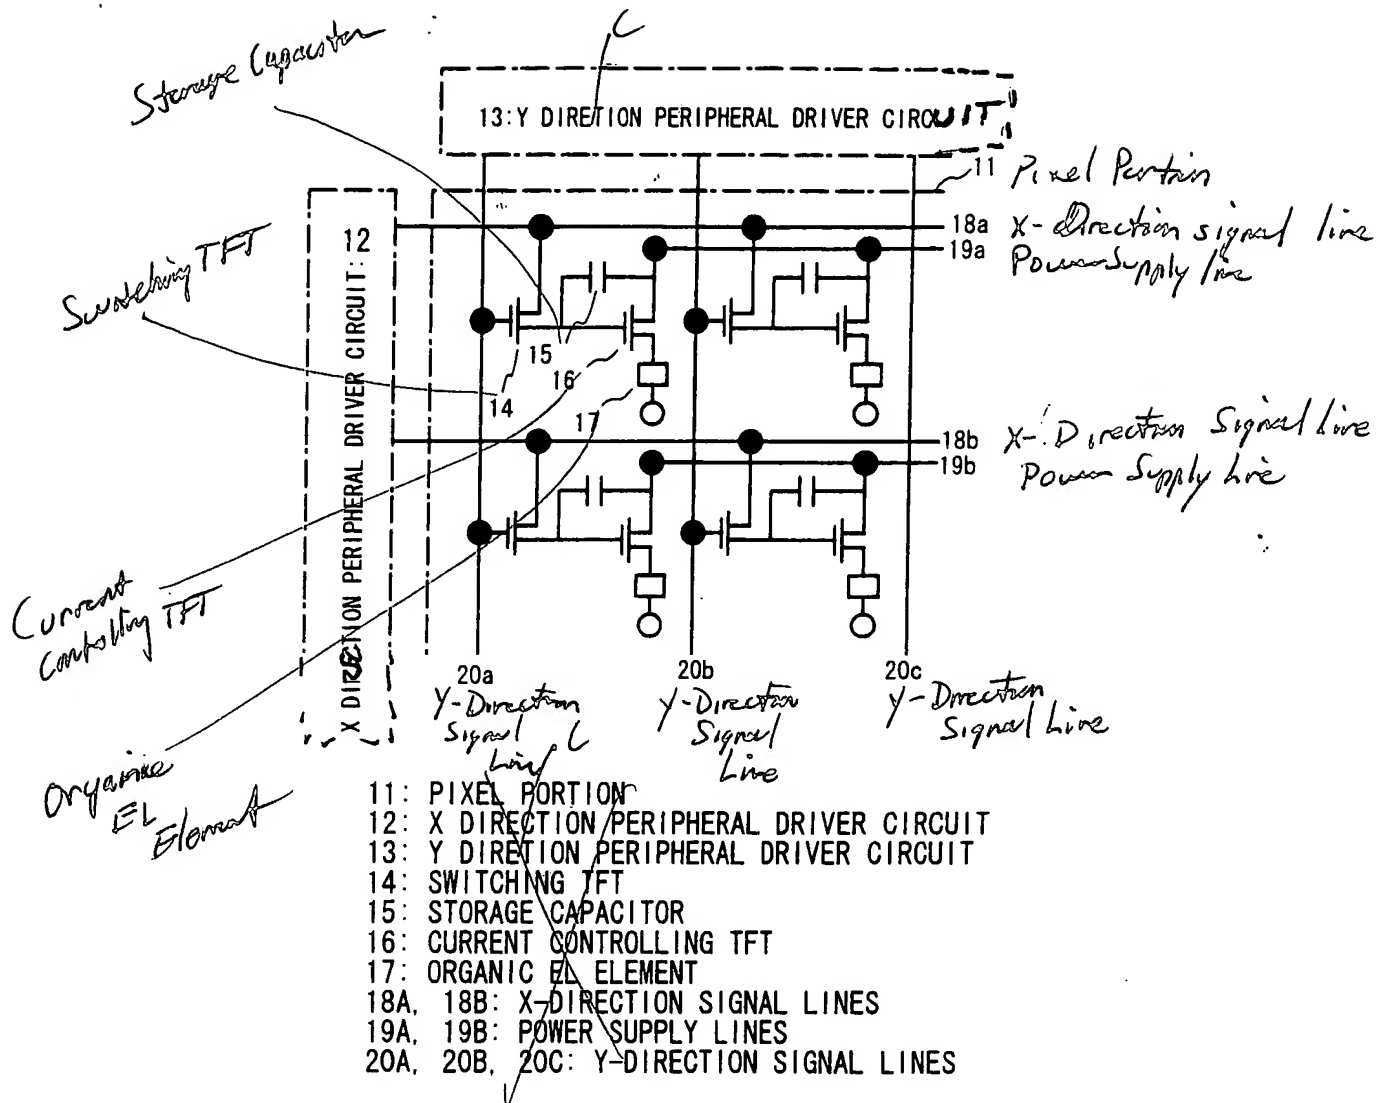 C
Storage Capacitor
13:Y DIRETION PERIPHERAL DRIVER CIRCUIT
11 Pixel Portion
18a X-Direction signal line
19a Power Supply line
Switching TFT
X DIRECTION PERIPHERAL DRIVER CIRCUIT:12
15
16
14
17
18b X-Direction Signal line
19b Power Supply Line
Current
Controlling TFT
20a
Y-Direction
Signal
Line
20b
Y-Direction
Signal
Line
20c
Y-Direction
Signal Line
C
Organic
EL
Element
11: PIXEL PORTION
12: X DIRECTION PERIPHERAL DRIVER CIRCUIT
13: Y DIRETION PERIPHERAL DRIVER CIRCUIT
14: SWITCHING TFT
15: STORAGE CAPACITOR
16: CURRENT CONTROLLING TFT
17: ORGANIC EL ELEMENT
18A, 18B: X-DIRECTION SIGNAL LINES
19A, 19B: POWER SUPPLY LINES
20A, 20B, 20C: Y-DIRECTION SIGNAL LINES